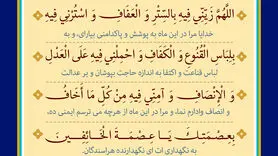 اللَّهُمَّ زَیِّنِّی فِیهِ بِالسِّتْرِ وَ الْعَفَافِ وَ اسْتُرْنِی فِیهِ
خدایا مرا در این ماه به پوشش و پاکدامنی بیارای، و به
بِلِبَاسِ الْقُنُوعِ وَ الْکَفَافِ وَ احْمِلْنِی فِیهِ عَلَی الْعَدْلِ
لباس قناعت و اکتفا به اندازه حاجت بپوشان و بر عدالت
وَ الْإِنْصَافِ وَ آمِنِّی فِیهِ مِنْ کُلِّ مَا أَخَافُ
و انصاف وادارم نما، و مرا در این ماه از هرچه می ترسم ایمنی ده،
بِعِصْمَتِکَ یَا عِصْمَةَ الْخَائِفِینَ
به نگهداری ات ای نگهدارنده هراسندگان.